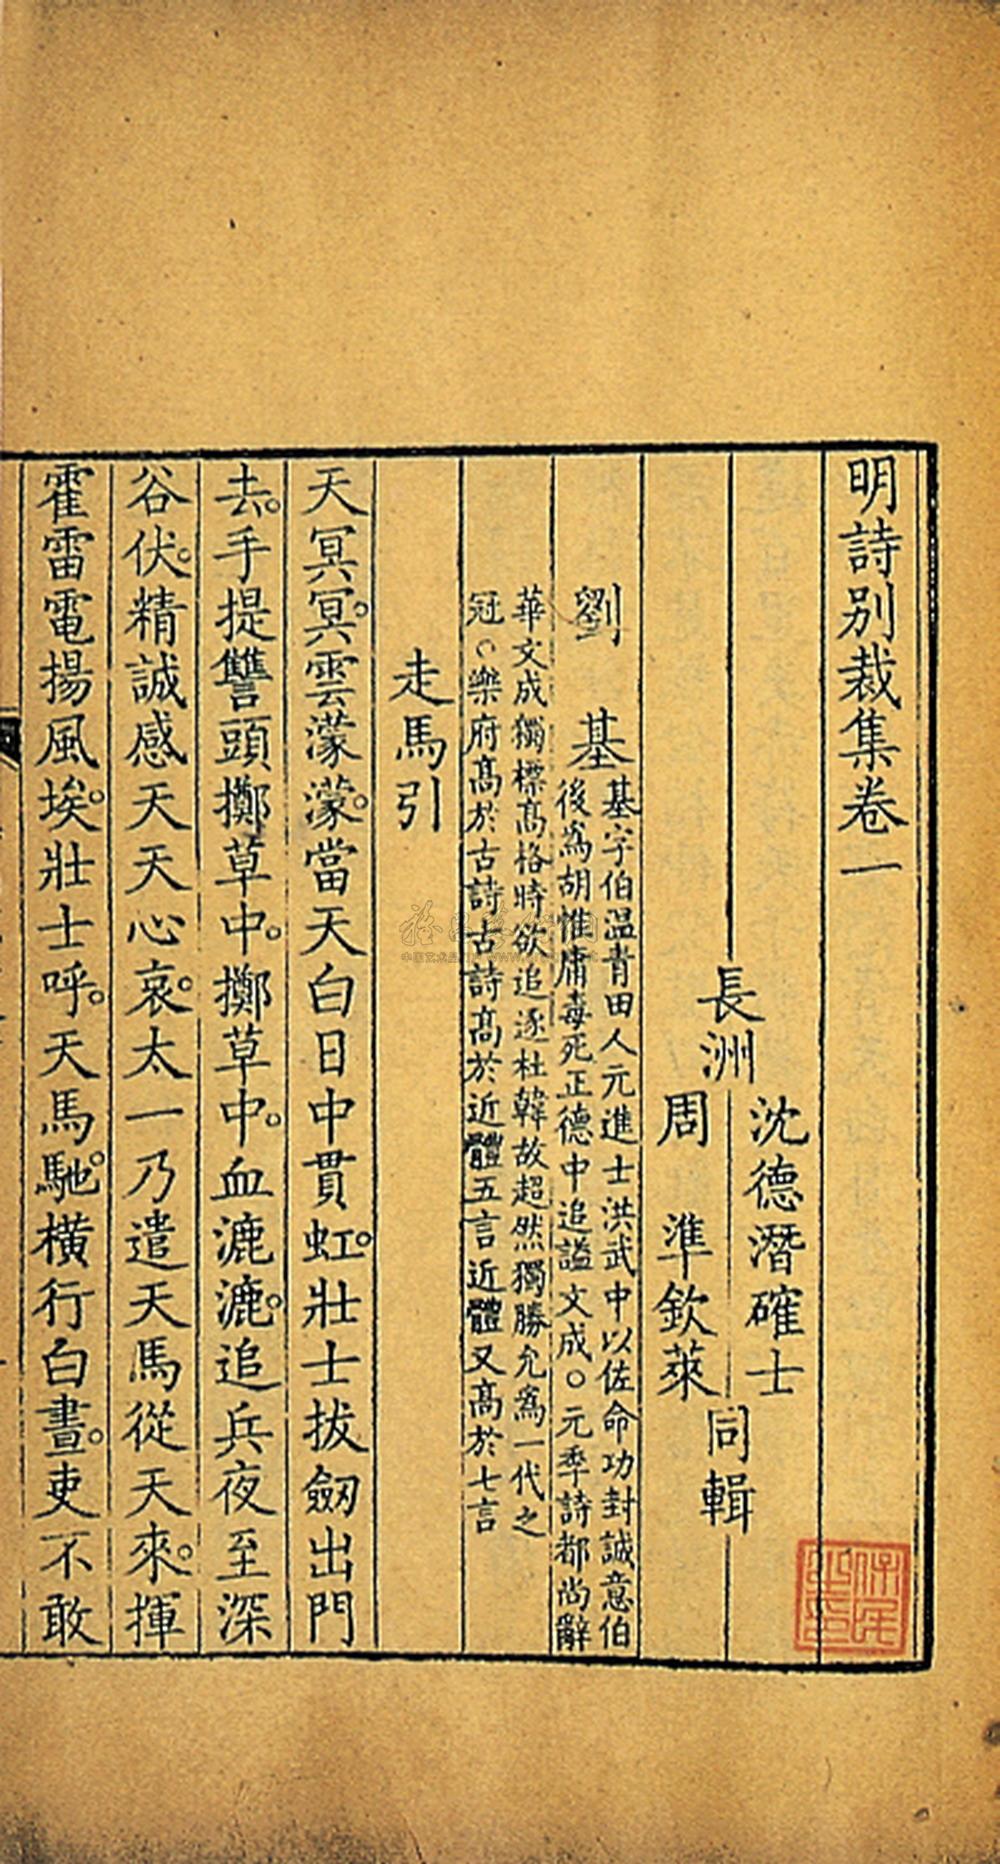 明詩别裁集卷一
長洲
沈德潛確士
周準欽萊
同輯
劉基
基字伯温青田人元進士洪武中以佐命功封誠意伯
後爲胡惟庸毒死正德中追謚文成○元季詩都尚辭
華文成獨標高格時欲追逐杜韓故超然獨勝允爲一代之
冠○樂府高於古詩古詩高於近體五言近體又高於七言
走馬引
天冥冥。雲濛濛。當天白日中貫虹。壯士拔劔出門
去。手提讐頭擲草中。擲草中。血漉漉。追兵夜至深
谷伏。精誠感天天心哀。太一乃遣天馬從天來。揮
霍雷電揚風埃。壯士呼。天馬馳。橫行白晝。吏不敢